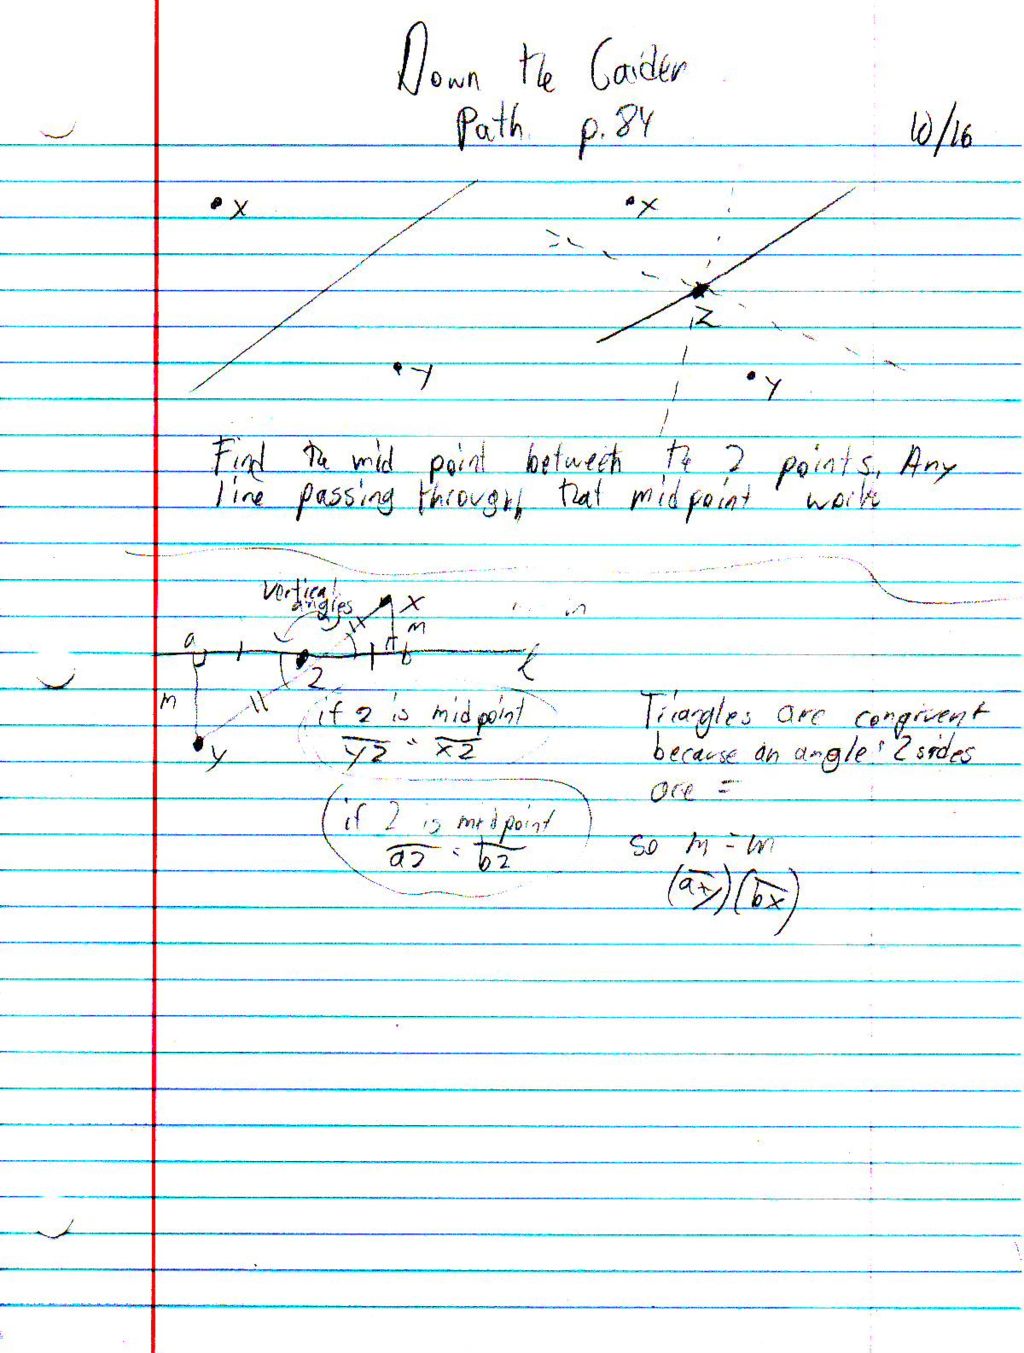 Down the Gaiden
Path p.84
10/16
X
Y
X
Z
Y
Find the mid point between the 2 points. Any
line passing through that midpoint works
vertical
angles
X
m
a
b
l
Z
m
y
if z is midpoint
yz = xz
Triangles are congruent
because an angle & 2 sides
are =
if z is midpoint
az = bz
so m = m
(ay) (bx)